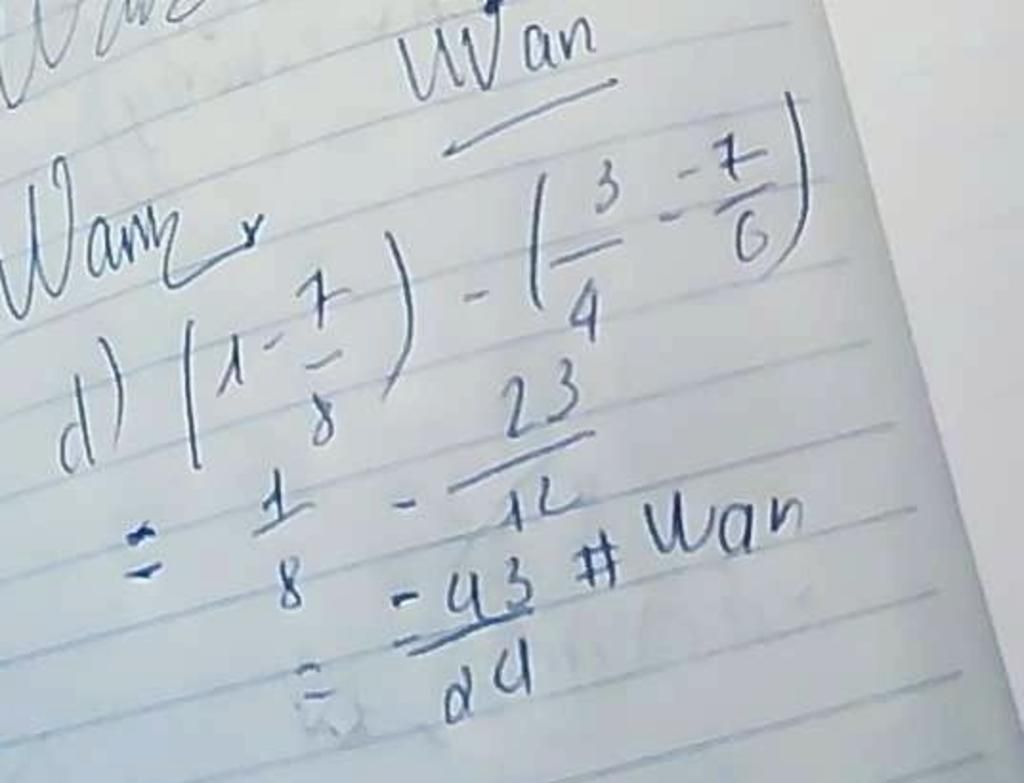 Wan
Wan
d) (1 - 7/8) - (3/4 - -7/6)
= 1/8 - 23/12
= -43/24 # Wan